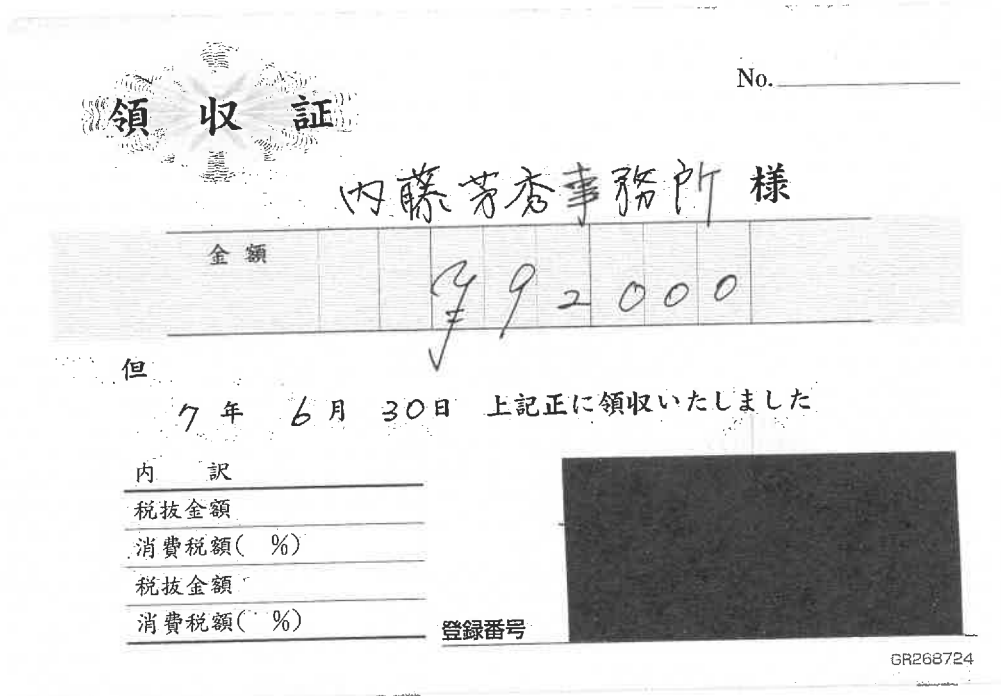 No.
領収証
内藤芳秀事務所 様
金額 ¥92000
但
7年 6月 30日 上記正に領収いたしました
内 訳
税抜金額
消費税額( %)
税抜金額
消費税額( %)
登録番号
GR268724